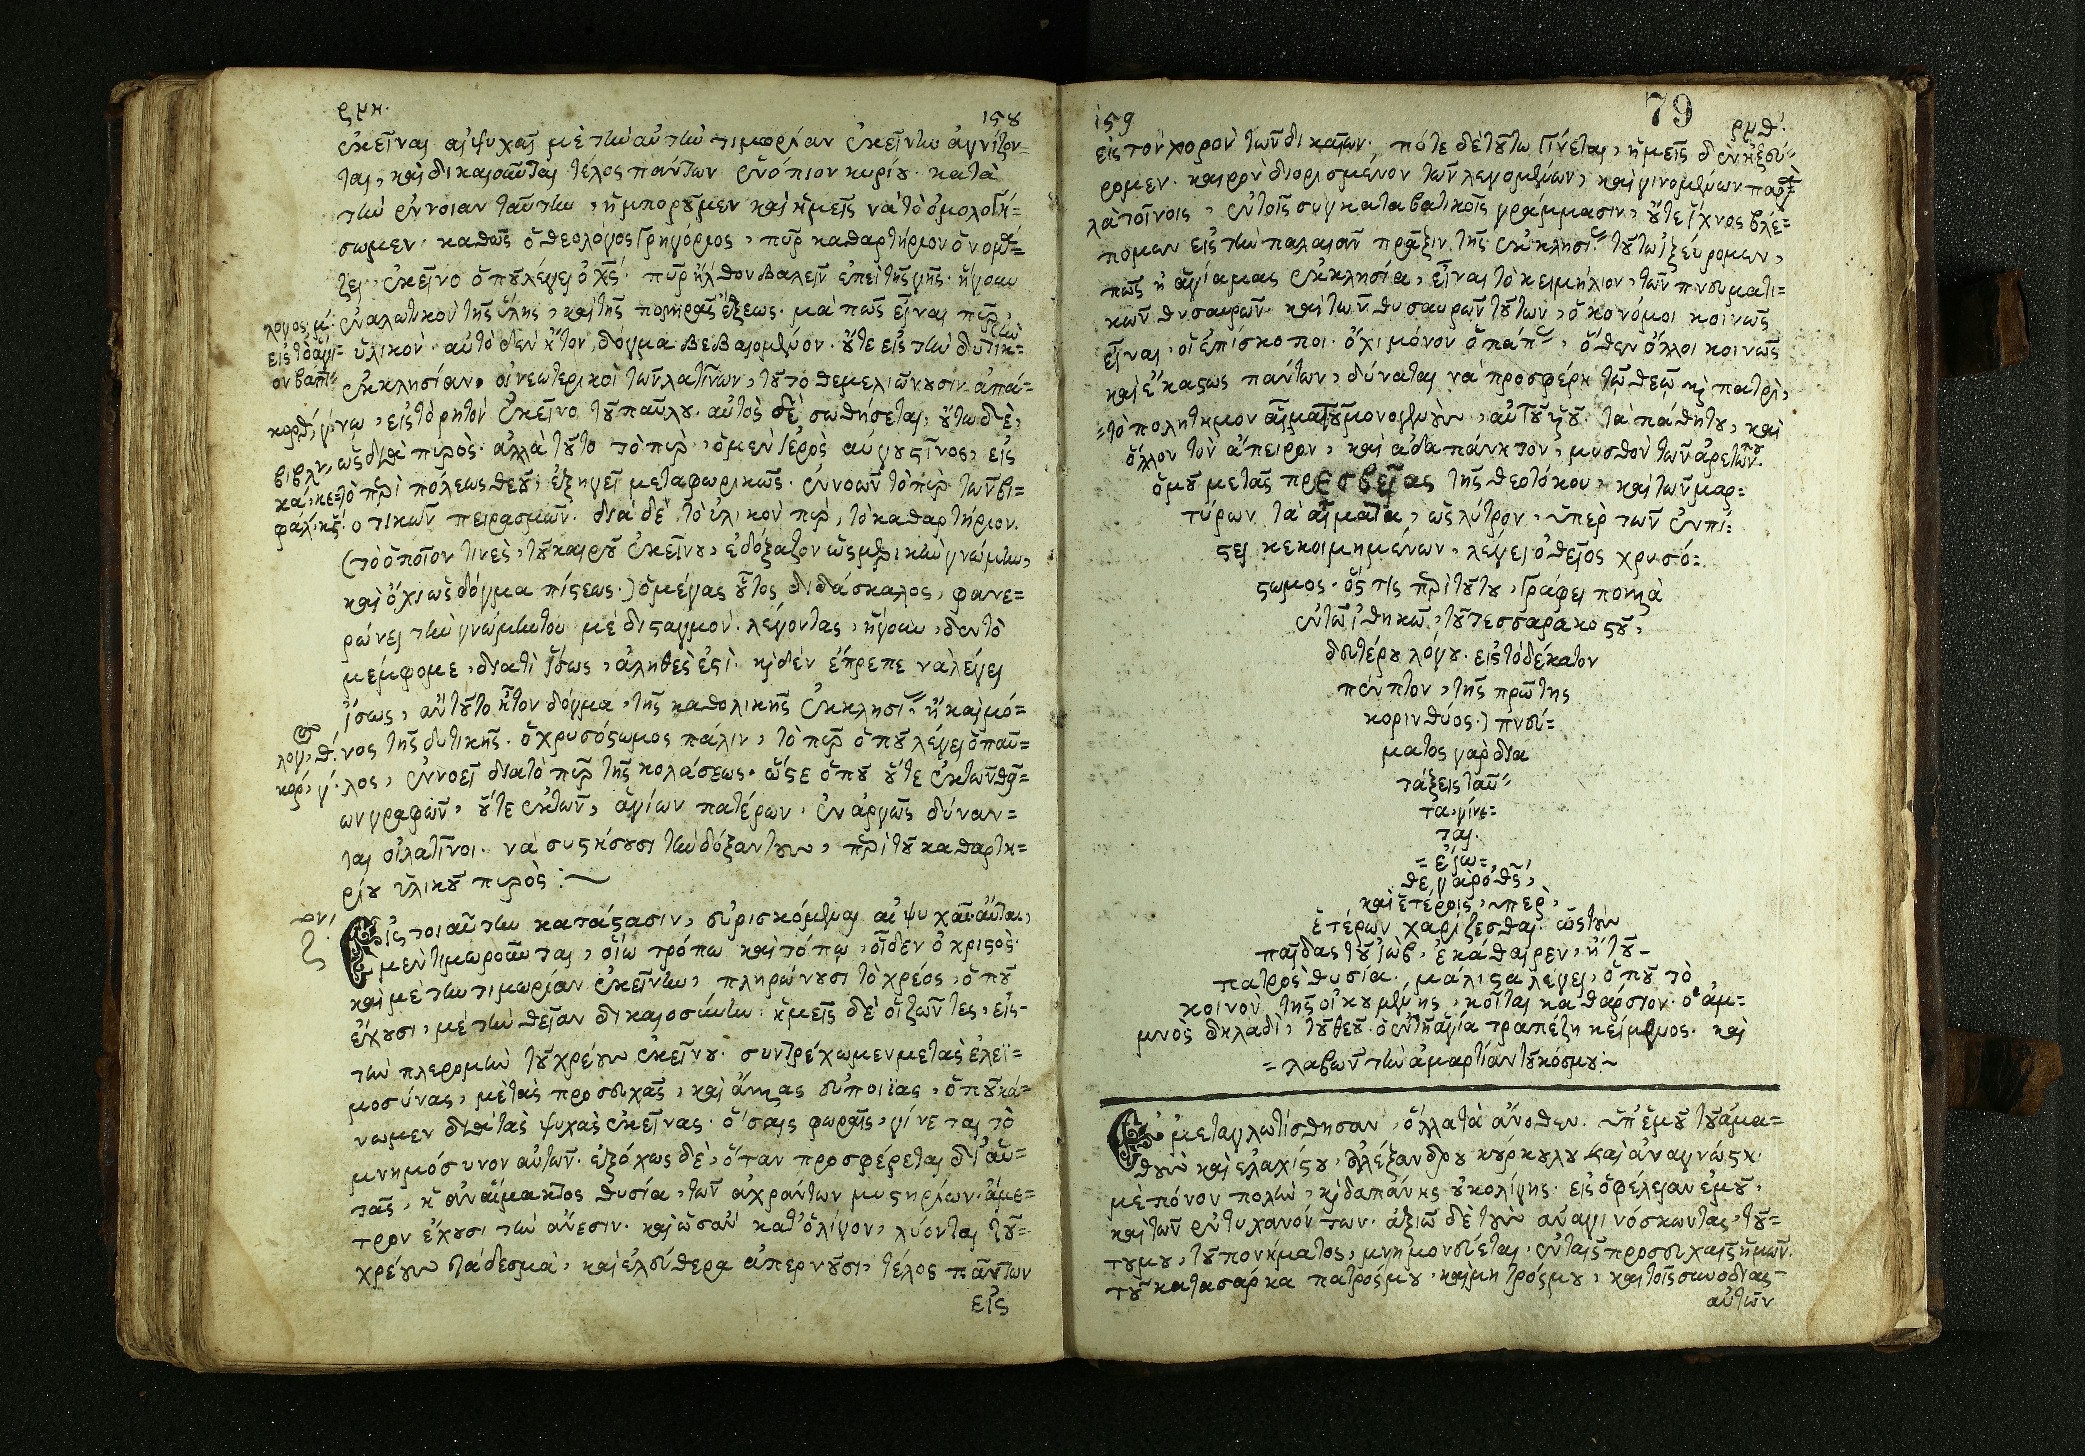 ρμη.
158
ἐκεῖναι αἱ ψυχαῖς μὲ τὴν αὐτὴν τιμορίαν ἐκείνην ἁγνίζον-
ται, καὶ δικαιοῦνται τέλος πάντων ἐνόπιον κυρίου. κατὰ
τὴν ἔννοιαν ταύτην, ἠμποροῦμεν καὶ ἡμεῖς νὰ τὸ ὁμολογή=
σωμεν. καθὼς ὁ θεολόγος Γρηγόριος, πῦρ καθαρτήριον ὀνομά=
ζει. ἐκεῖνο ὁποῦ λέγει ὁ χς. πῦρ ἦλθον βαλεῖν ἐπεὶ τῆς γῆς. ἤγουν
ἀναλωτικὸν τῆς ὕλης, καὶ τῆς πονηρᾶς ἕξεως. μὰ πῶς εἶναι πῦρ
ὑλικὸν. αὐτὸ δὲν ἦτον δόγμα βεβαιομένον. οὔτε εἰς τὴν δυτικ=
ἐκκλησίαν. οἱ νεωτερικοὶ τῶν λατίνων, τοῦτο θεμελιώνουσιν ἀπά=
νω, εἰς τὸ ρητὸν ἐκεῖνο τοῦ παύλου. αὐτὸς δὲ σωθήσεται, οὕτω δὲ,
ὡς διὰ πυρὸς. ἀλλὰ τοῦτο τὸ πῦρ, ὁ μὲν ἱερὸς αὐγουστῖνος, εἰς
τὸ περὶ πόλεως θεοῦ, ἐξηγεῖ μεταφωρικῶς. ἐννοῶν τὸ πῦρ τῶν βι=
οτικῶν πειρασμῶν. διὰ δὲ τὸ ὑλικὸν πῦρ, τὸ καθαρτήριον.
(τὸ ὁποῖον τινὲς, τοῦ καιροῦ ἐκείνου, ἐδόξαζον ὡς μερικὴν γνώμην,
καὶ ὄχι ὡς δόγμα πίστεως.) ὁ μέγας οὗτος διδάσκαλος, φανε=
ρώνει τὴν γνώμην του μὲ δισταγμὸν. λέγοντας, ἤγουν, δὲν τὸ
μέμφομε, διατὶ ἴσως, ἀληθές ἐστί. καὶ δὲν ἔπρεπε νὰ λέγει
ἴσως, ἂν τοῦτο ἦτον δόγμα, τῆς καθολικῆς ἐκκλησίας ἢ καὶ μό=
νος τῆς δυτικῆς. ὁ χρυσόστωμος πάλιν, τὸ πῦρ ὁποῦ λέγει ὁ παῦ=
λος, ἐννοεῖ διὰ τὸ πῦρ τῆς κολάσεως. ὥστε ὁποῦ οὔτε ἐκ τῶν θεί=
ων γραφῶν, οὔτε ἐκ τῶν, ἁγίων πατέρων. ἐναργῶς δύναν=
ται οἱ λατῖνοι. νὰ συστήσουσι τὴν δόξαν των, περὶ τοῦ καθαρτη=
ρίου ὑλικοῦ πυρὸς :~
Εἰς τοιαύτην κατάστασιν, εὑρισκόμεναι αἱ ψυχαῖς αὗται,
μὲν τιμωροῦνται, οἵω τρόπω καὶ τόπῳ, οἶδεν ὁ κριτὸς.
καὶ μὲ τὴν τιμωρίαν ἐκείνην, πληρώνουσι τὸ χρέος, ὁποῦ
ἔχουσι, μὲ τὴν θείαν δικαιοσύνην. ἡμεῖς δὲ οἱ ζῶντες, εἰς-
τὴν πλερομὴν τοῦ χρέους ἐκείνου. συντρέχωμεν μετὰς ἐλεϊ=
μοσύνας, μὲ τὰς προσευχὰς, καὶ ἄλλας εὐποιίας, ὁποῦ κά=
νωμεν διὰ τὰς ψυχὰς ἐκείνας. ὅσαις φωραῖς, γίνεται τὸ
μνημόσυνον αὐτῶν. ἐξόχως δὲ, ὅταν προσφέρεται δι' αὐ=
τὰς, ἡ ἀναίμακτος θυσία, τῶν ἀχράντων μυστηρίων. ἄμε-
τρον ἔχουσι τὴν ἄνεσιν. καὶ ὡσὰν κατ' ὀλίγον, λύονται τοῦ=
χρέους τὰ δεσμὰ, καὶ ἐλεύθερα ἀπερνοῦσι, τέλος πάντων
εἰς
159
79
ρμθ.
εἰς τὸν χορὸν τῶν δικαίων. πότε δὲ τοῦτο γίνεται, ἡμεῖς δὲν ἠξεύ=
ρομεν. καιρὸν διορισμένον τῶν λεγομένων, καὶ γινομένων παρὰ
λατοίνοις, ἐν τοῖς συγκαταβατικοῖς γράμμασιν, οὔτε ἴχνος βλέ=
πομεν εἰς τὴν παλαιὰν πρᾶξιν τῆς ἐκκλησίας τοῦτο ἰξεύρομεν,
πῶς ἡ ἁγία μας ἐκκλησία, εἶναι τὸ κειμήλιον, τῶν πνευματι=
κῶν θησαυρῶν. καὶ τῶν θυσαυρῶν τούτων, οἰκονόμοι κοινῶς
εἶναι, οἱ ἐπίσκοποι. ὄχι μόνον ὁ πάπας, ὅθεν ὅλλοι κοινῶς
καὶ ἕκαστος πάντων, δύναται νὰ προσφέρη τῶ θεῶ καὶ πατρὶ,
=τὸ πολητημον αἷμα τοῦ μονογενοῦς, αὐτοῦ υἱοῦ. τὰ πάθητου, καὶ
ὅλλον τὸν ἄπειρον, καὶ ἀδαπάνητον, μυσθὸν τῶν ἀρετῶν του
ὁμοῦ μετὰς πρεσβείας τῆς θεοτόκου, καὶ τῶν μαρ=
τύρων τὰ αἵματα, ὡς λύτρον, ὑπὲρ τῶν ἐν πί=
στει κεκοιμημένων, λέγει ὁ θεῖος χρυσό=
στωμος. ὅστις περὶ τούτου, γράφει πολλὰ
ἐν τῶ ἰθηκῶ, τοῦ τεσσαρακοστοῦ,
δευτέρου λόγου. εἰς τὸ δέκατον
πέμπτον, τῆς πρώτης
κορινθύος.) πνεύ=
ματος γὰρ δια
τάξεις ταῦ=
τα, γίνε=
ται.
=εἴω=
θε γὰρ ὁ θς,
καὶ ἑτέροις, ὑπὲρ,
ἑτέρων χαρίζεσθαι. ὡς τοὺς
παῖδας τοῦ ἰὼβ, ἐκάθαιρεν, ἡ τοῦ-
πατρὸς θυσία. μάλιστα λέγει, ὁποῦ τὸ
κοινὸν τῆς οἰκουμένης, κεῖται καθάρσιον. ὁ ἀμ=
μνὸς δηλαδὶ, τοῦ θεοῦ. ὁ ἐν τῆ ἁγία τραπέζη κείμενος. καὶ
=λαβὼν τὴν ἁμαρτίαν τοῦ κόσμου:~
Ἐμεταγλωτίσθησαν, ὅλλα τὰ ἄνοθεν. ὑπ' ἐμοῦ τοῦ ἀμα=
θοῦς καὶ ἐλαχίστου, Ἀλέξανδρου κύρκουλου καὶ ἀναγνώστη.
μὲ πόνον πολὺν, καὶ δαπάνης οὐκ ολίγης. εἰς ὀφέλειαν ἐμοῦ,
καὶ τῶν ἐντυχανόντων. ἀξιῶ δὲ τοὺς ἀναγινόσκωντας, τοῦ=
τουμου, τοῦ πονήματος, μνημονεύεται, ἐν ταῖς προσευχαῖς ἡμῶν.
τοῦ κατασάρκα πατρόςμου, καὶ μητρόςμου, καὶ τοῖς συνοδίας-
αὐτῶν